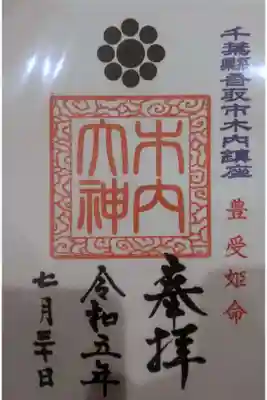 千葉縣香取市木内鎮座
豊受姫命
木内
大神
奉拝
令和五年
七月三十日